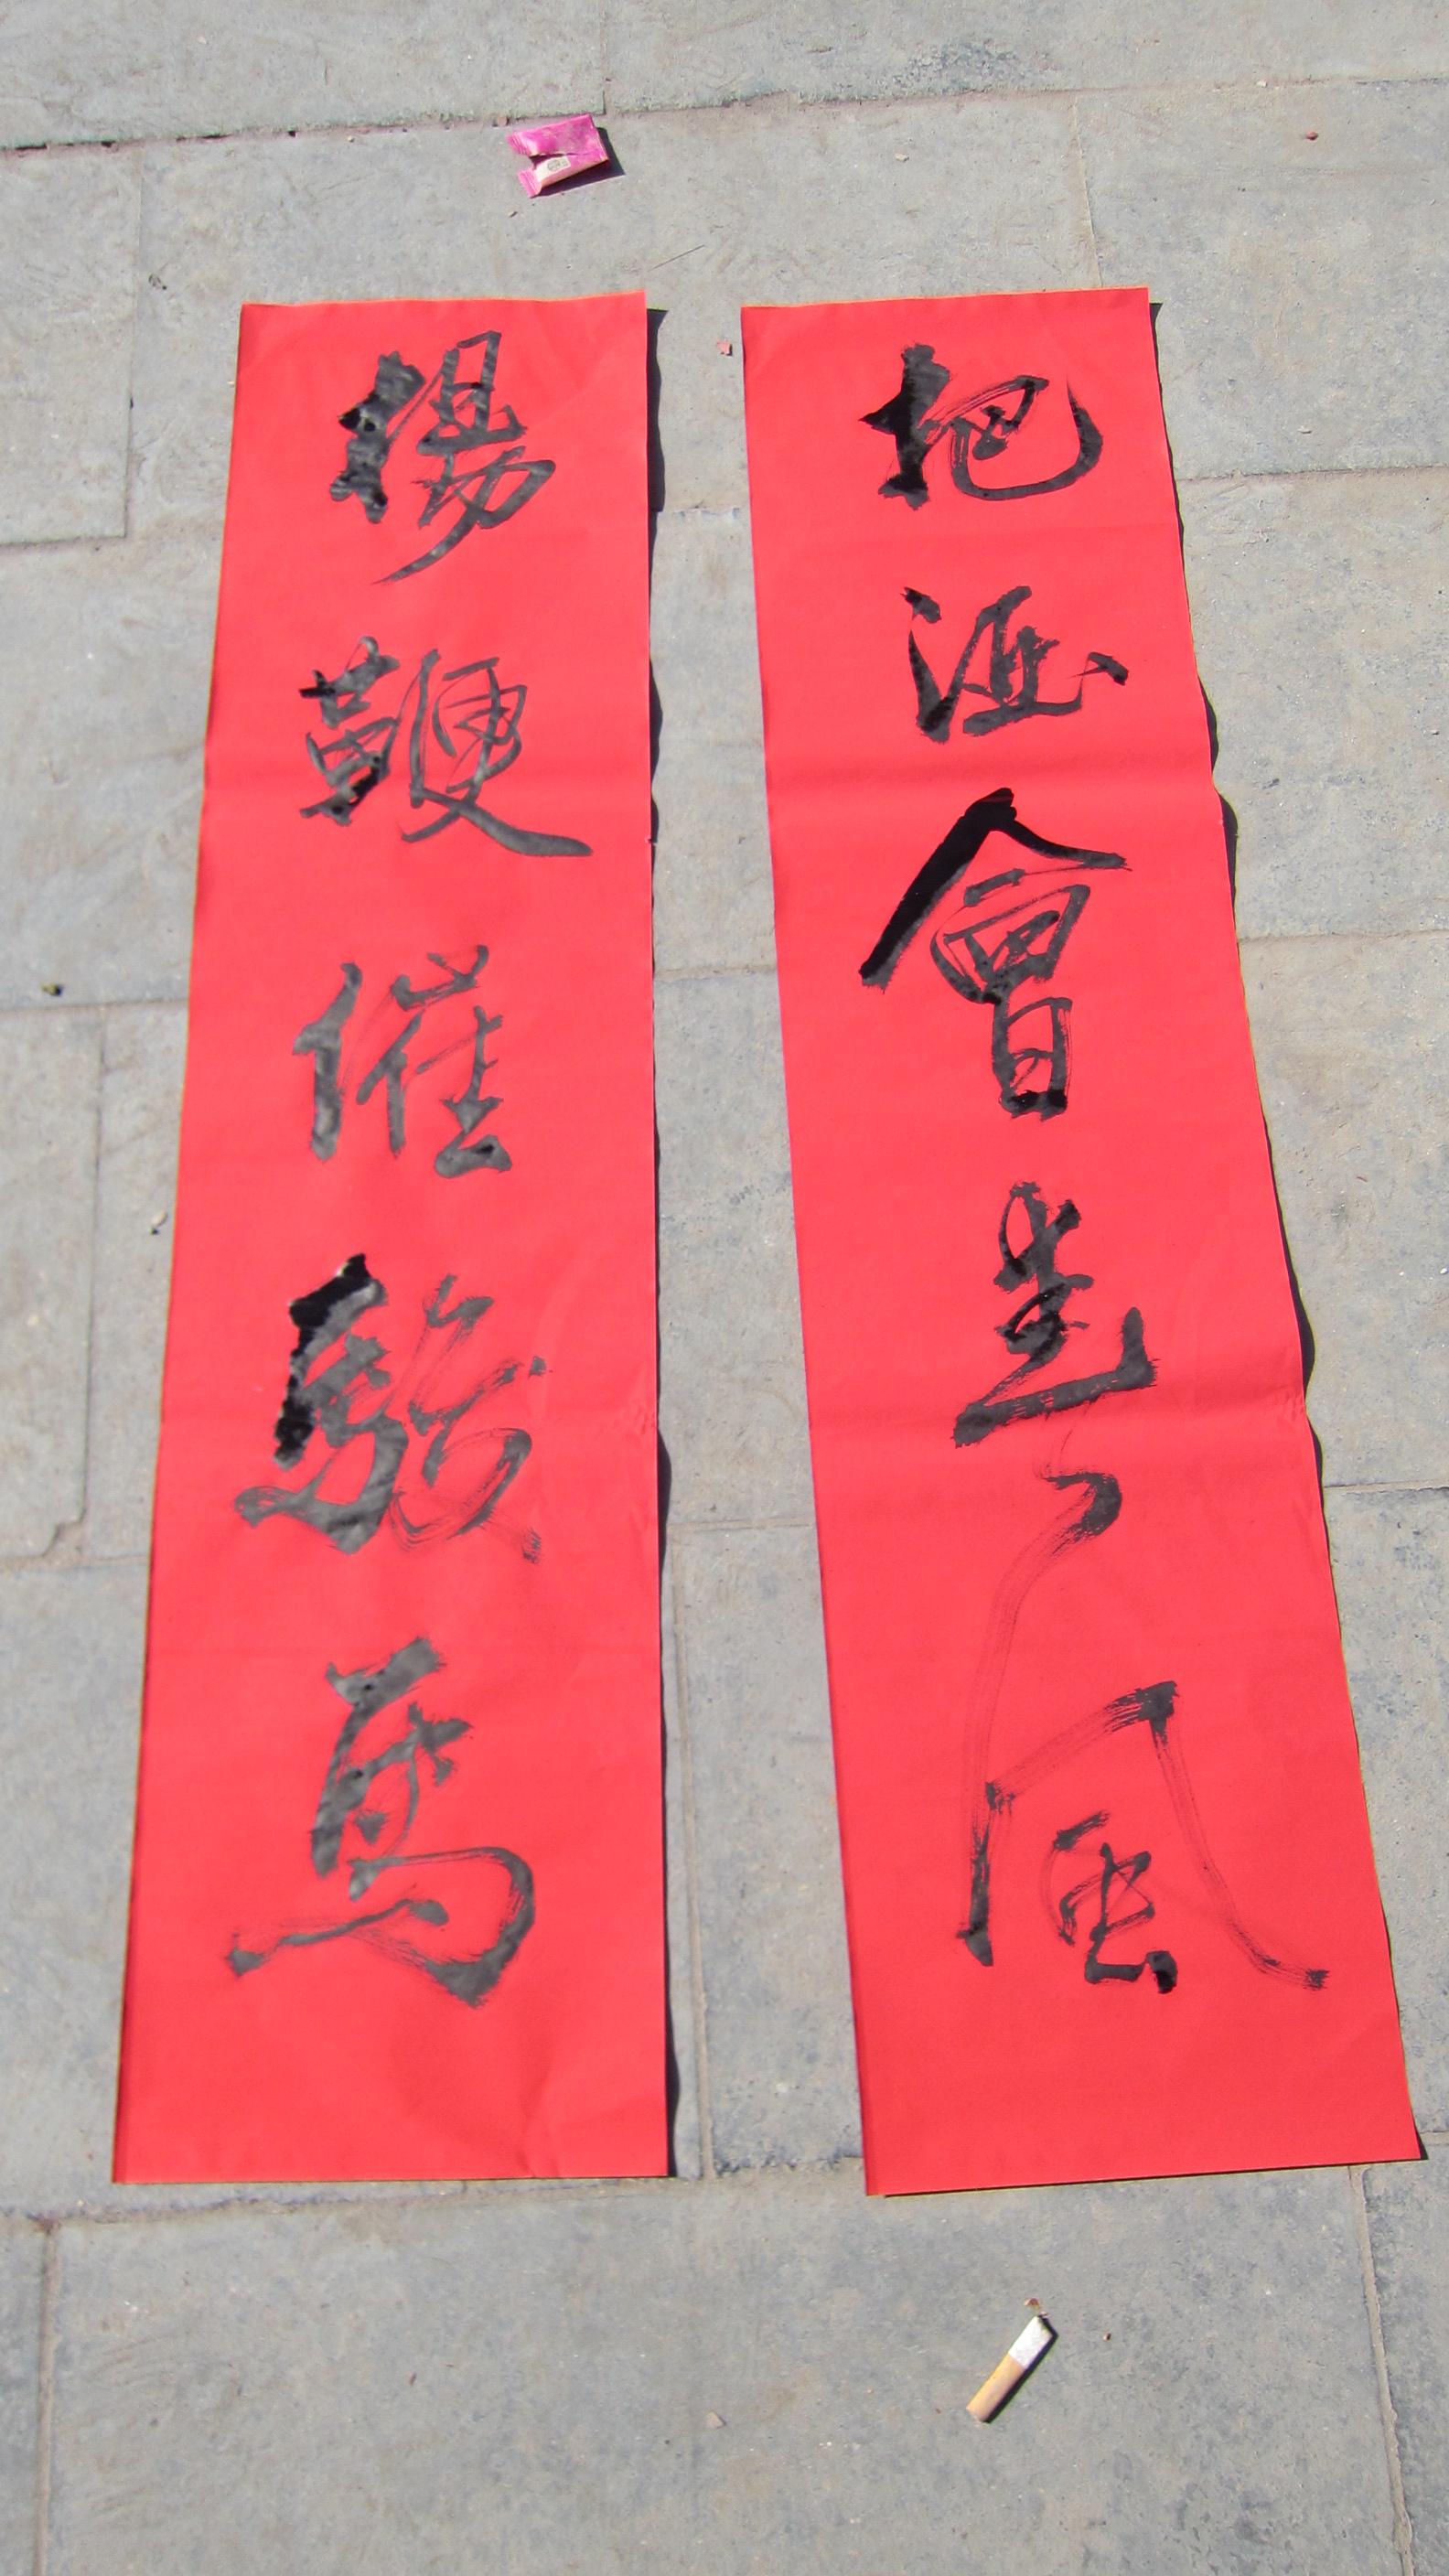 把酒會風
揚鞭催駿馬